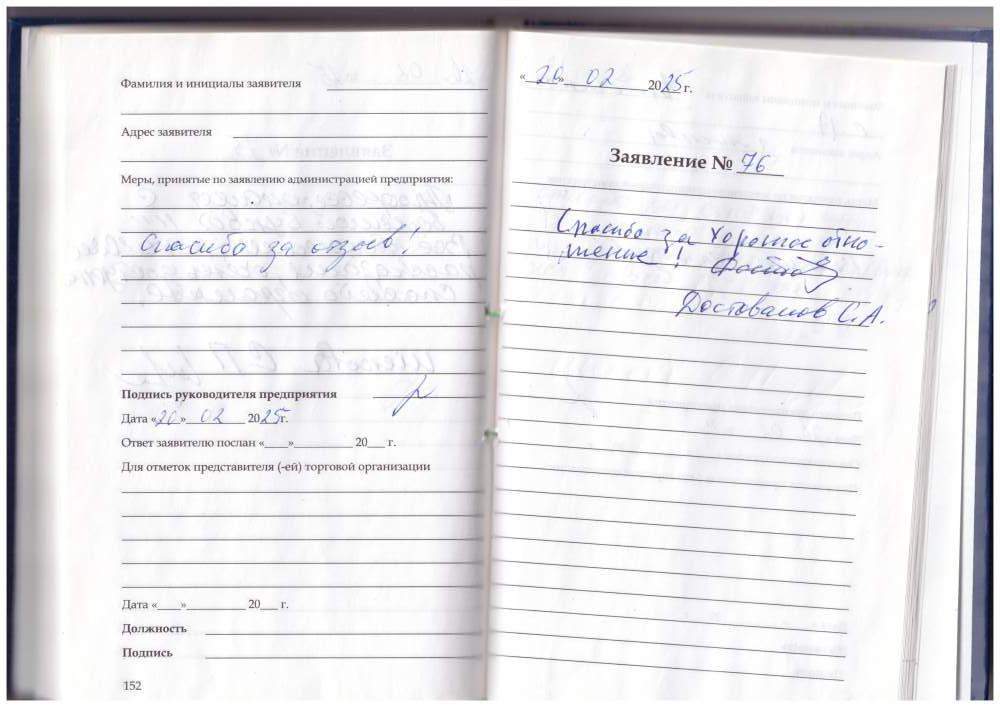 Фамилия и инициалы заявителя
Адрес заявителя
Меры, принятые по заявлению администрацией предприятия:
Спасибо за отзыв!
Подпись руководителя предприятия
Дата «20» 02 2025г.
Ответ заявителю послан «___» ________ 20___ г.
Для отметок представителя (-ей) торговой организации
Дата «___»________ 20___ г.
Должность
Подпись
152
«20» 02 2025 г.
Заявление № 76
Спасибо за хорошее отно-
шение!
Достовалов С.А.